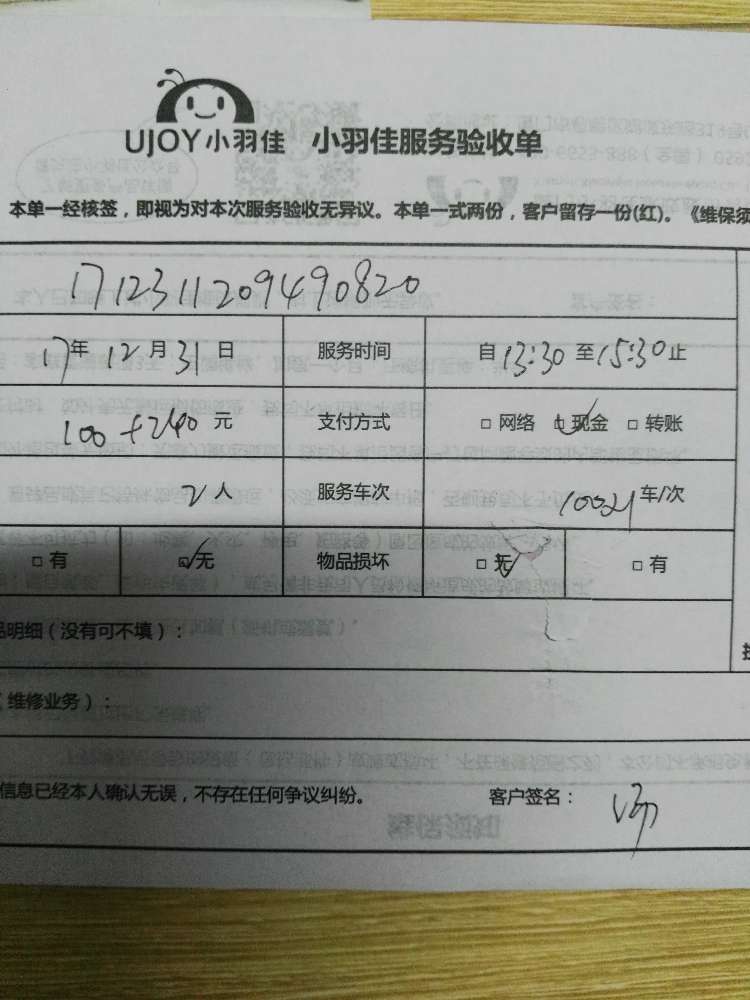 UJOY小羽佳 小羽佳服务验收单
本单一经核签，即视为对本次服务验收无异议。本单一式两份，客户留存一份(红)。《维保须
1712311209490820
17年12月31日 服务时间 自13:30至15:30止
100+240元 支付方式 □网络 ☑现金 □转账
2人 服务车次 10021车/次
□有 ☑无 物品损坏 ☑无 □有
品明细（没有可不填）：
（维修业务）：
信息已经本人确认无误，不存在任何争议纠纷。 客户签名：